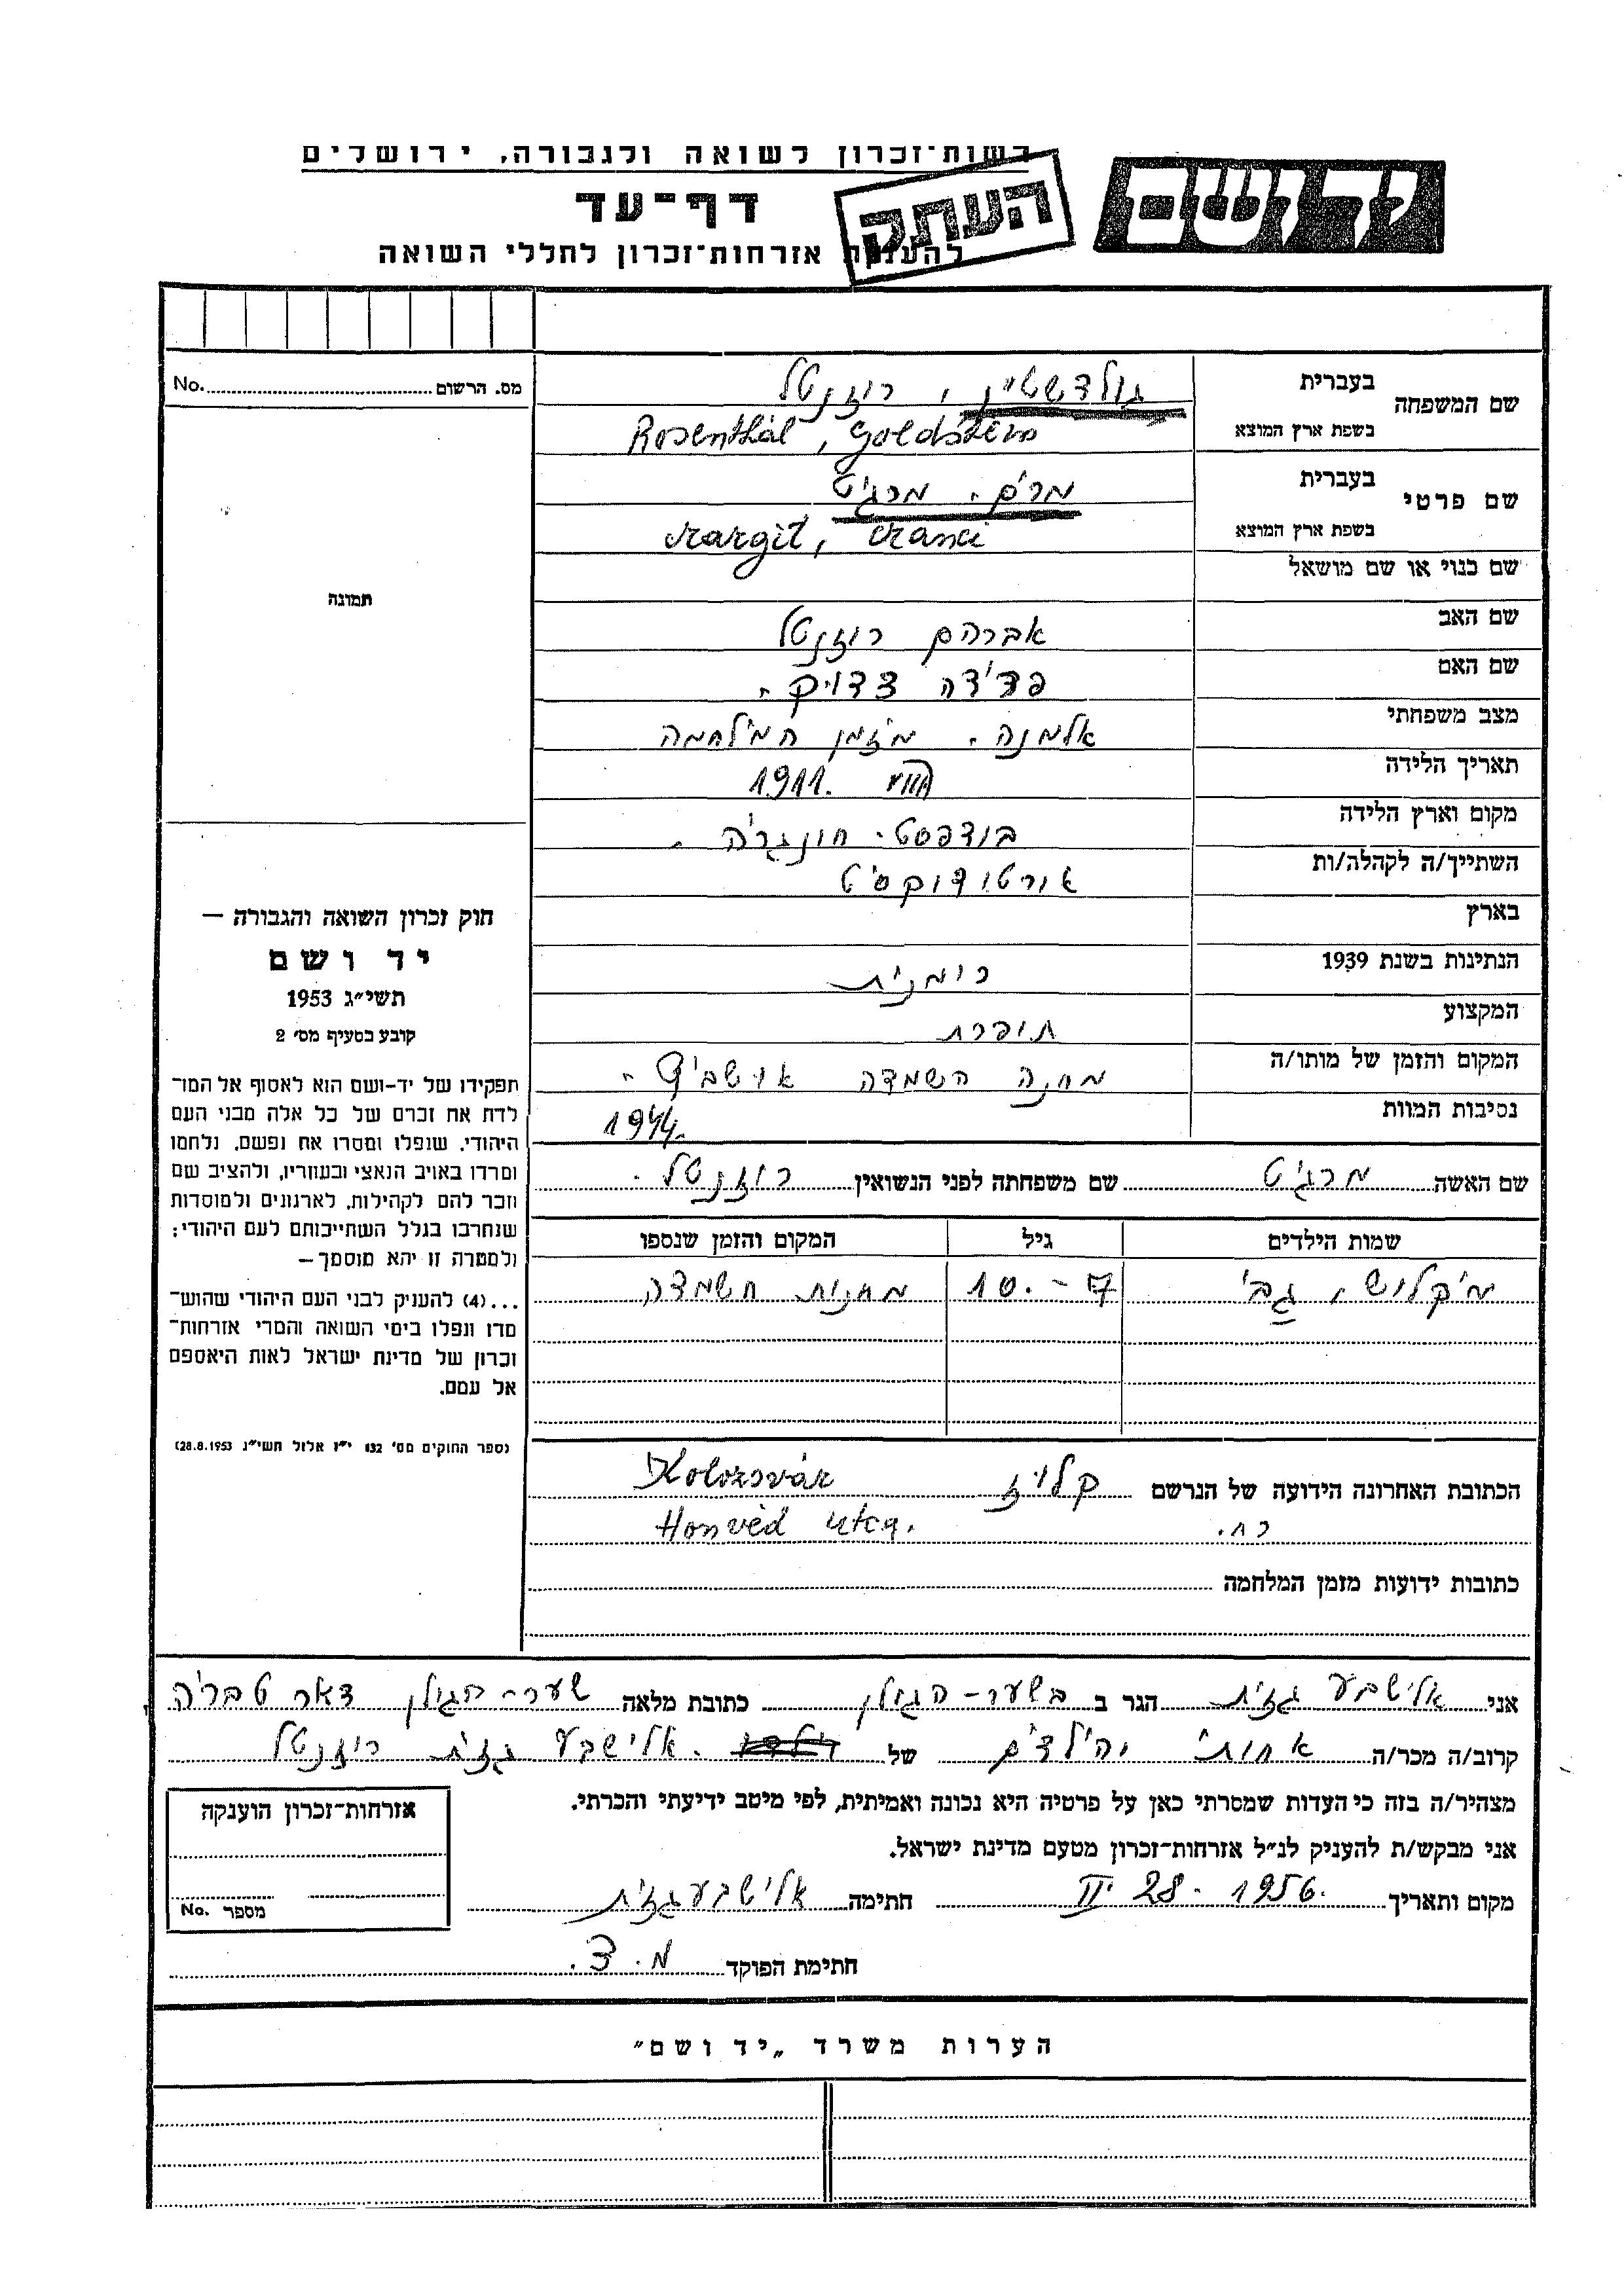 רשות־זכרון לשואה ולגבורה, ירושלים
יד ושם
העתק
דף־עד
להענקת אזרחות־זכרון לחללי השואה
מס. הרשום No.
שם המשפחה בעברית גולדשטיין, רוזנטל
בשפת ארץ המוצא Rosenthál, Goldstein
שם פרטי בעברית מרים. מרגיט
בשפת ארץ המוצא Margit, Manci
שם כנוי או שם מושאל
תמונה
שם האב אברהם רוזנטל
שם האם פרידה צדויק.
מצב משפחתי אלמנה. מזמן המילחמה
תאריך הלידה VIII 1911.
מקום וארץ הלידה בודפסט. הונגריה.
השתייך/ה לקהלה/ות אורטודוקסיט
בארץ
הנתינות בשנת 1939 רומנית
המקצוע תופרת
המקום והזמן של מותו/ה מחנה השמדה אושביץ.
נסיבות המוות 1944.
חוק זכרון השואה והגבורה —
יד ושם
תשי״ג 1953
קובע בסעיף מס׳ 2
תפקידו של יד-ושם הוא לאסוף אל המו־
לדת את זכרם של כל אלה מבני העם
היהודי, שנפלו ומסרו את נפשם, נלחמו
ומרדו באויב הנאצי ובעוזריו, ולהציב שם
וזכר להם לקהילות, לארגונים ולמוסדות
שנחרבו בגלל השתייכותם לעם היהודי;
ולמטרה זו יהא מוסמך—
...(4) להעניק לבני העם היהודי שהוש־
מדו ונפלו בימי השואה והמרי אזרחות־
זכרון של מדינת ישראל לאות היאספם
אל עמם.
(ספר החוקים מס׳ 132 י״ז אלול תשי״ג 28.8.1953)
שם האשה מרגיט שם משפחתה לפני הנשואין רוזנטל.
שמות הילדים גיל המקום והזמן שנספו
מיקלוש, גבי 7 - 10. מחנות השמדה
הכתובת האחרונה הידועה של הנרשם קלוז Kolozsvár
רח. Honvéd utca.
כתובות ידועות מזמן המלחמה
אני אלישבע גזית הגר ב בשער-הגולן כתובת מלאה שער-הגולן דאר טבריה
קרוב/ה מכר/ה אחותי והילדים של אלישבע גזית רוזנטל
מצהיר/ה בזה כי העדות שמסרתי כאן על פרטיה היא נכונה ואמיתית, לפי מיטב ידיעתי והכרתי.
אני מבקש/ת להעניק לנ״ל אזרחות־זכרון מטעם מדינת ישראל.
מקום ותאריך 1956. II 28. חתימה אלישבע גזית
חתימת הפוקד מ. צ.
אזרחות־זכרון הוענקה
מספר No.
הערות משרד „יד ושם״